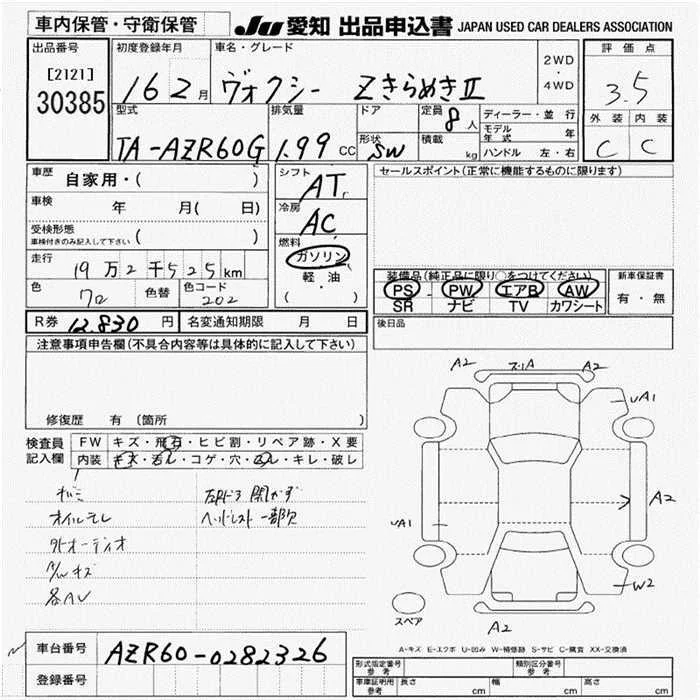 車内保管・守衛保管
JU 愛知 出品申込書 JAPAN USED CAR DEALERS ASSOCIATION
出品番号
[2121]
30385
初度登録年月
16 2月
車名・グレード
ヴォクシー Zきらめきⅱ
2WD
・
4WD
評価点
3.5
外装 内装
C C
型式
TA-AZR60G
排気量
1.99 CC
ドア
形状
SW
定員
8人
積載
kg
ディーラー・並行
モデル年式 年
ハンドル 左・右
車歴
自家用・( )
車検
年 月(日)
受検形態
車検付きのみ記入して下さい ( )
走行
19万2千525km
色
クロ
色替
色コード
202
シフト
AT
冷房
AC
燃料
ガソリン
軽・油
( )
セールスポイント(正常に機能するものに限ります)
装備品(純正品に限り○をつけてください)
PS PW エアB AW
SR ナビ TV カワシート
新車保証書
有・無
R券 12.830円
名変通知期限 月 日
後日品
注意事項申告欄(不具合内容等は具体的に記入して下さい)
修復歴 有 (箇所 )
検査員
記入欄
FW キズ・飛石・ヒビ割・リペア跡・X要
内装 キズ・汚レ・コゲ・穴・スレ・キレ・破レ
オイルモレ
外オーディオ
A/Wキズ
各AU
左Rドア開かず
ヘッドレスト一部欠
A2
A2
UA1
UA1
A2
W2
A2
スペア
A-キズ E-エクボ U-凹み W-補修跡 S-サビ C-腐食 XX-交換済
車台番号
AZR60-0282326
登録番号
形式指定番号
参考
類別区分番号
参考
車庫証明用
参考
長さ cm
幅 cm
高さ cm